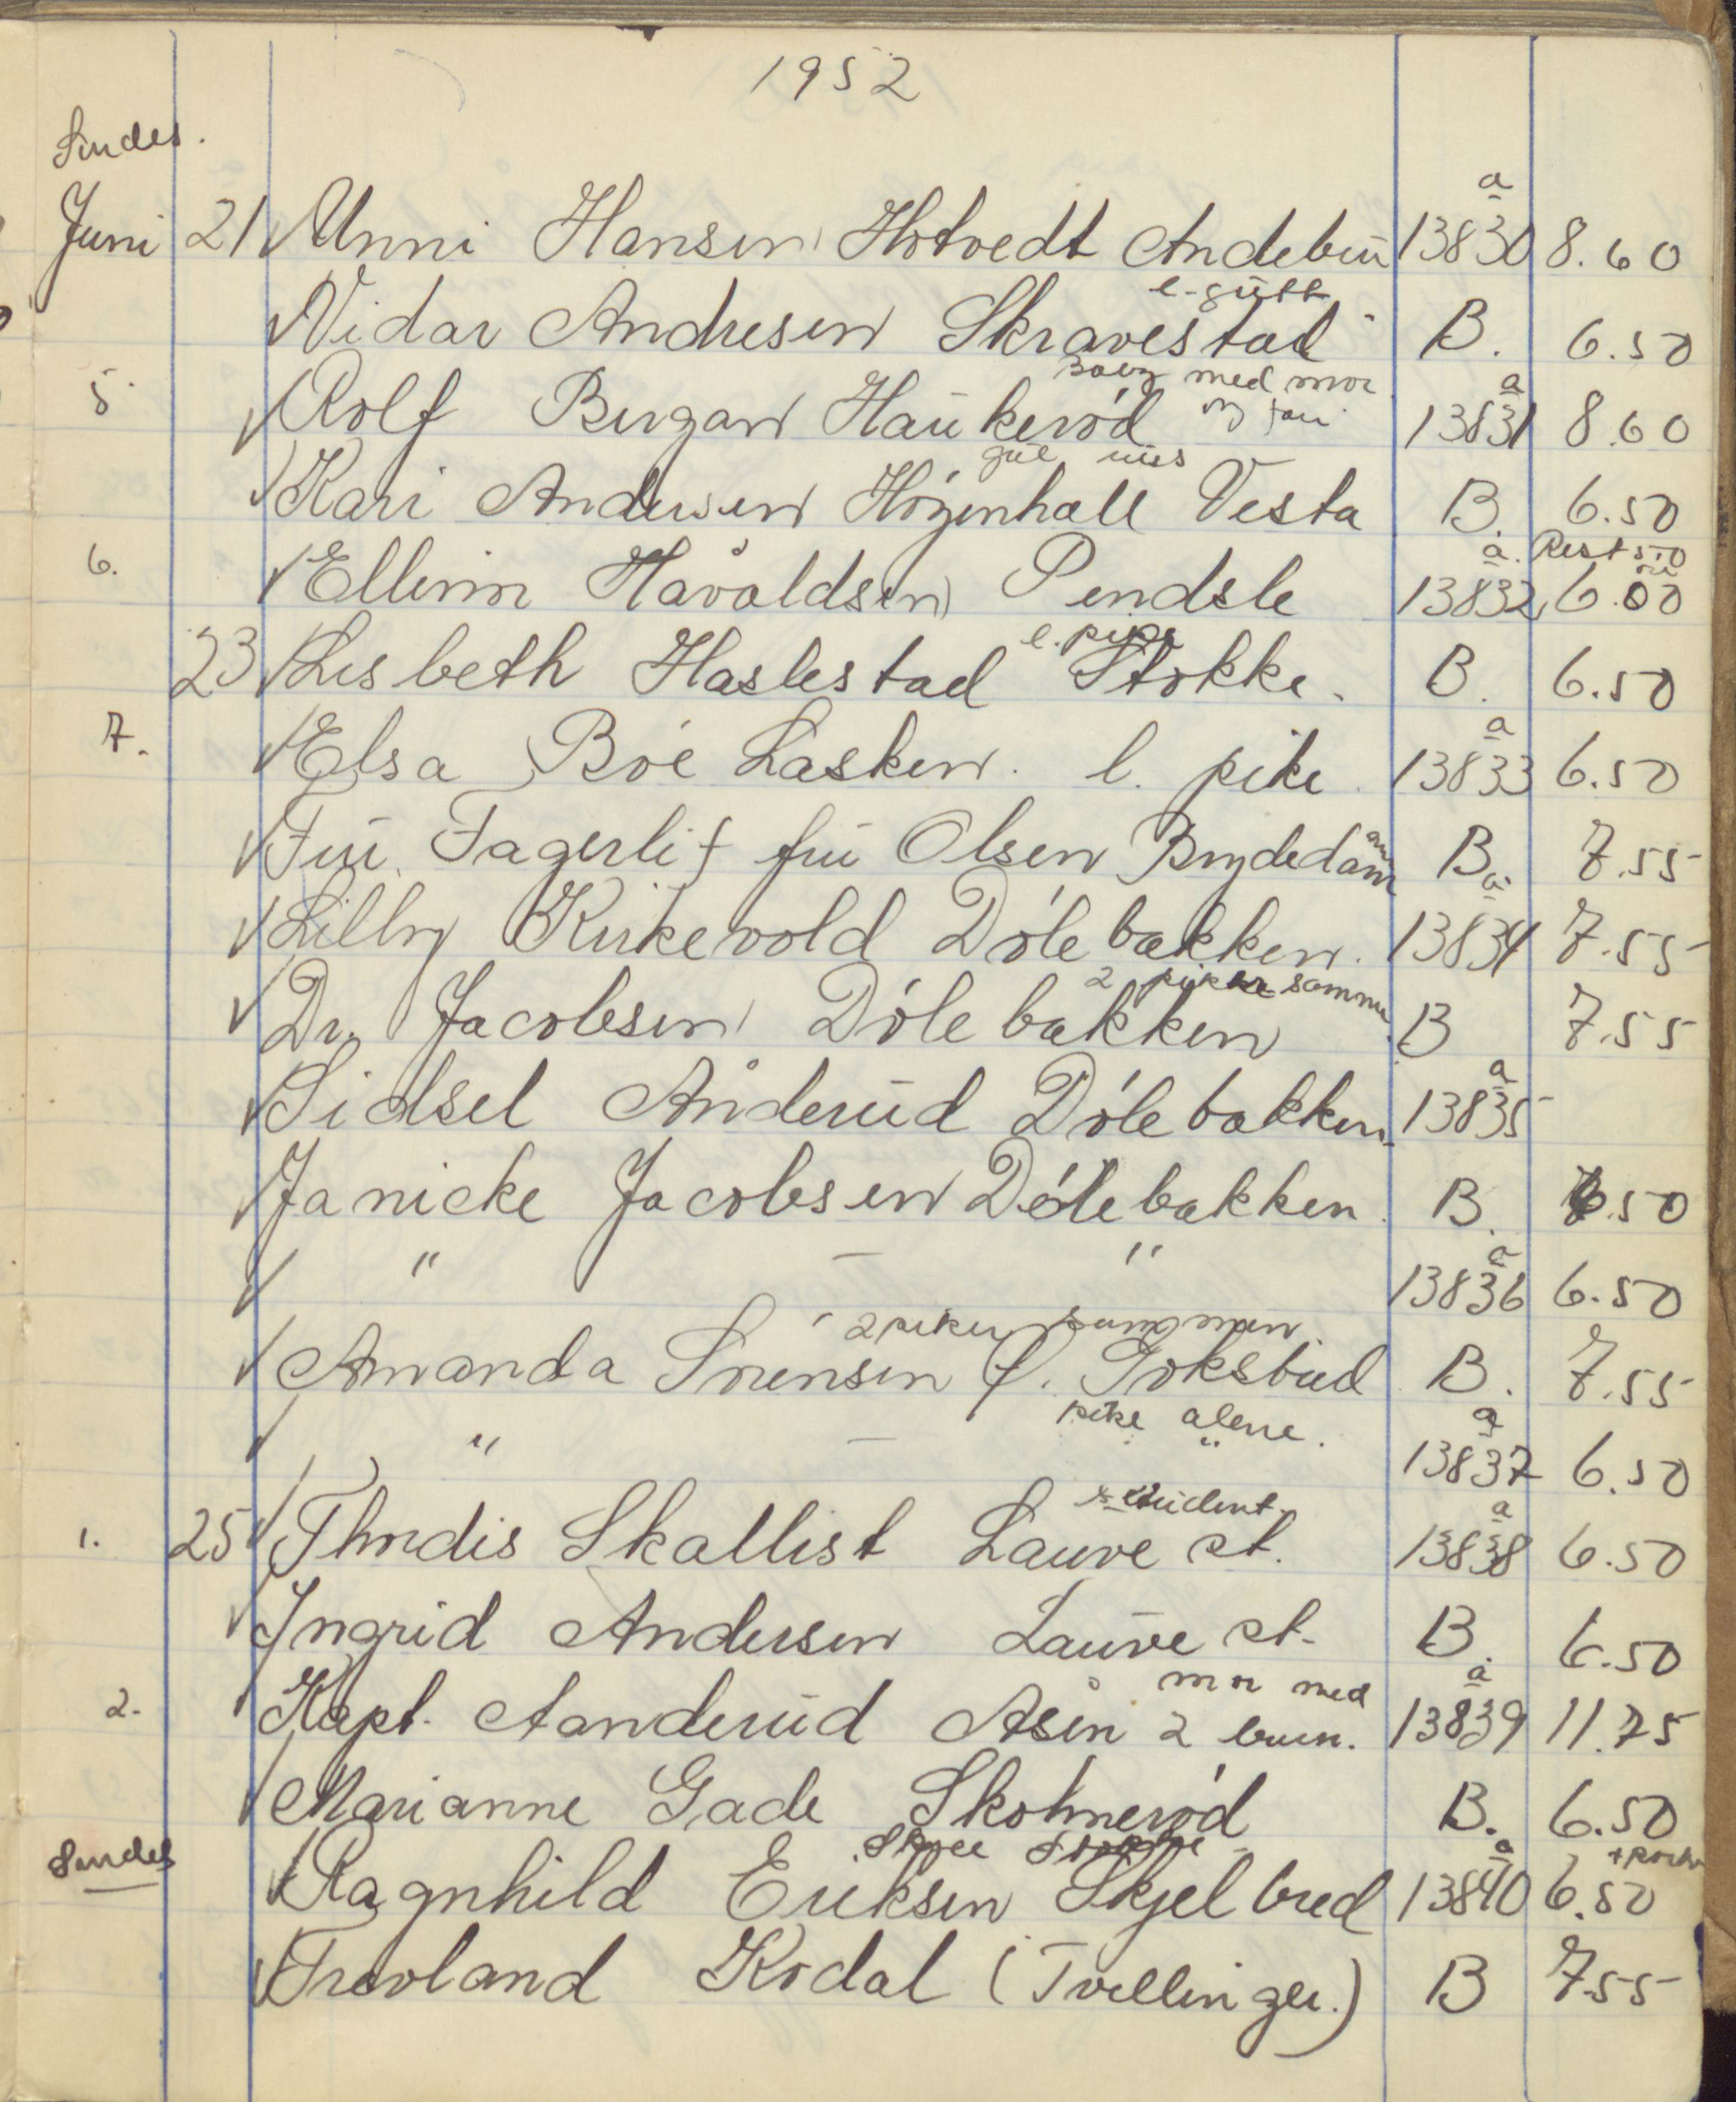 1952
Sendes.
a
Juni 21 Unni Hansen Hotvedt Andebu 13830 8.60
l. gutt
Vidar Andresen Skravestad B. 6.50
Baby med mor
5. Rolf Bergan Haukerød og far 13831 a 8.60
Kari Andersen Høgenhall Vesta B. 6.50
a. Rest 50
6. Ellinor Håvaldsen Pendsle 13832 6.00
l. pike
23 Lisbeth Haslestad Stokke. B. 6.50
a
7. Elsa Bøe Lasken. l. pike 13833 6.50
Fru Fagerli f fru Olsen Brydedam B. 7.55
a
Lilly Kirkevold Dølebakken. 13834 7.55
2 piker sammen
Dr. Jacobsen Dølebakken B 7.55
a
Sidsel Ånderud Dølebakken 13835
Janicke Jacobsen Dølebakken B. 6.50
a
" — " 13836 6.50
2 piker sammen
Amanda Sørensen f. Gokstad B. 7.55
pike alene. a
" — " 13837 6.50
student a
1. 25 Thordis Skallist Lauve st. 13838 6.50
Ingrid Andersen Lauve st. B. 6.50
mor med a
2. Kapt. Aanderud Åsen 2 barn. 13839 11.75
Marianne Gade Skolmerød B. 6.50
a
Sendes Ragnhild Eriksen Skjelbred 13840 6.50
Trevland Kodal (Tvillinger.) B 7.55